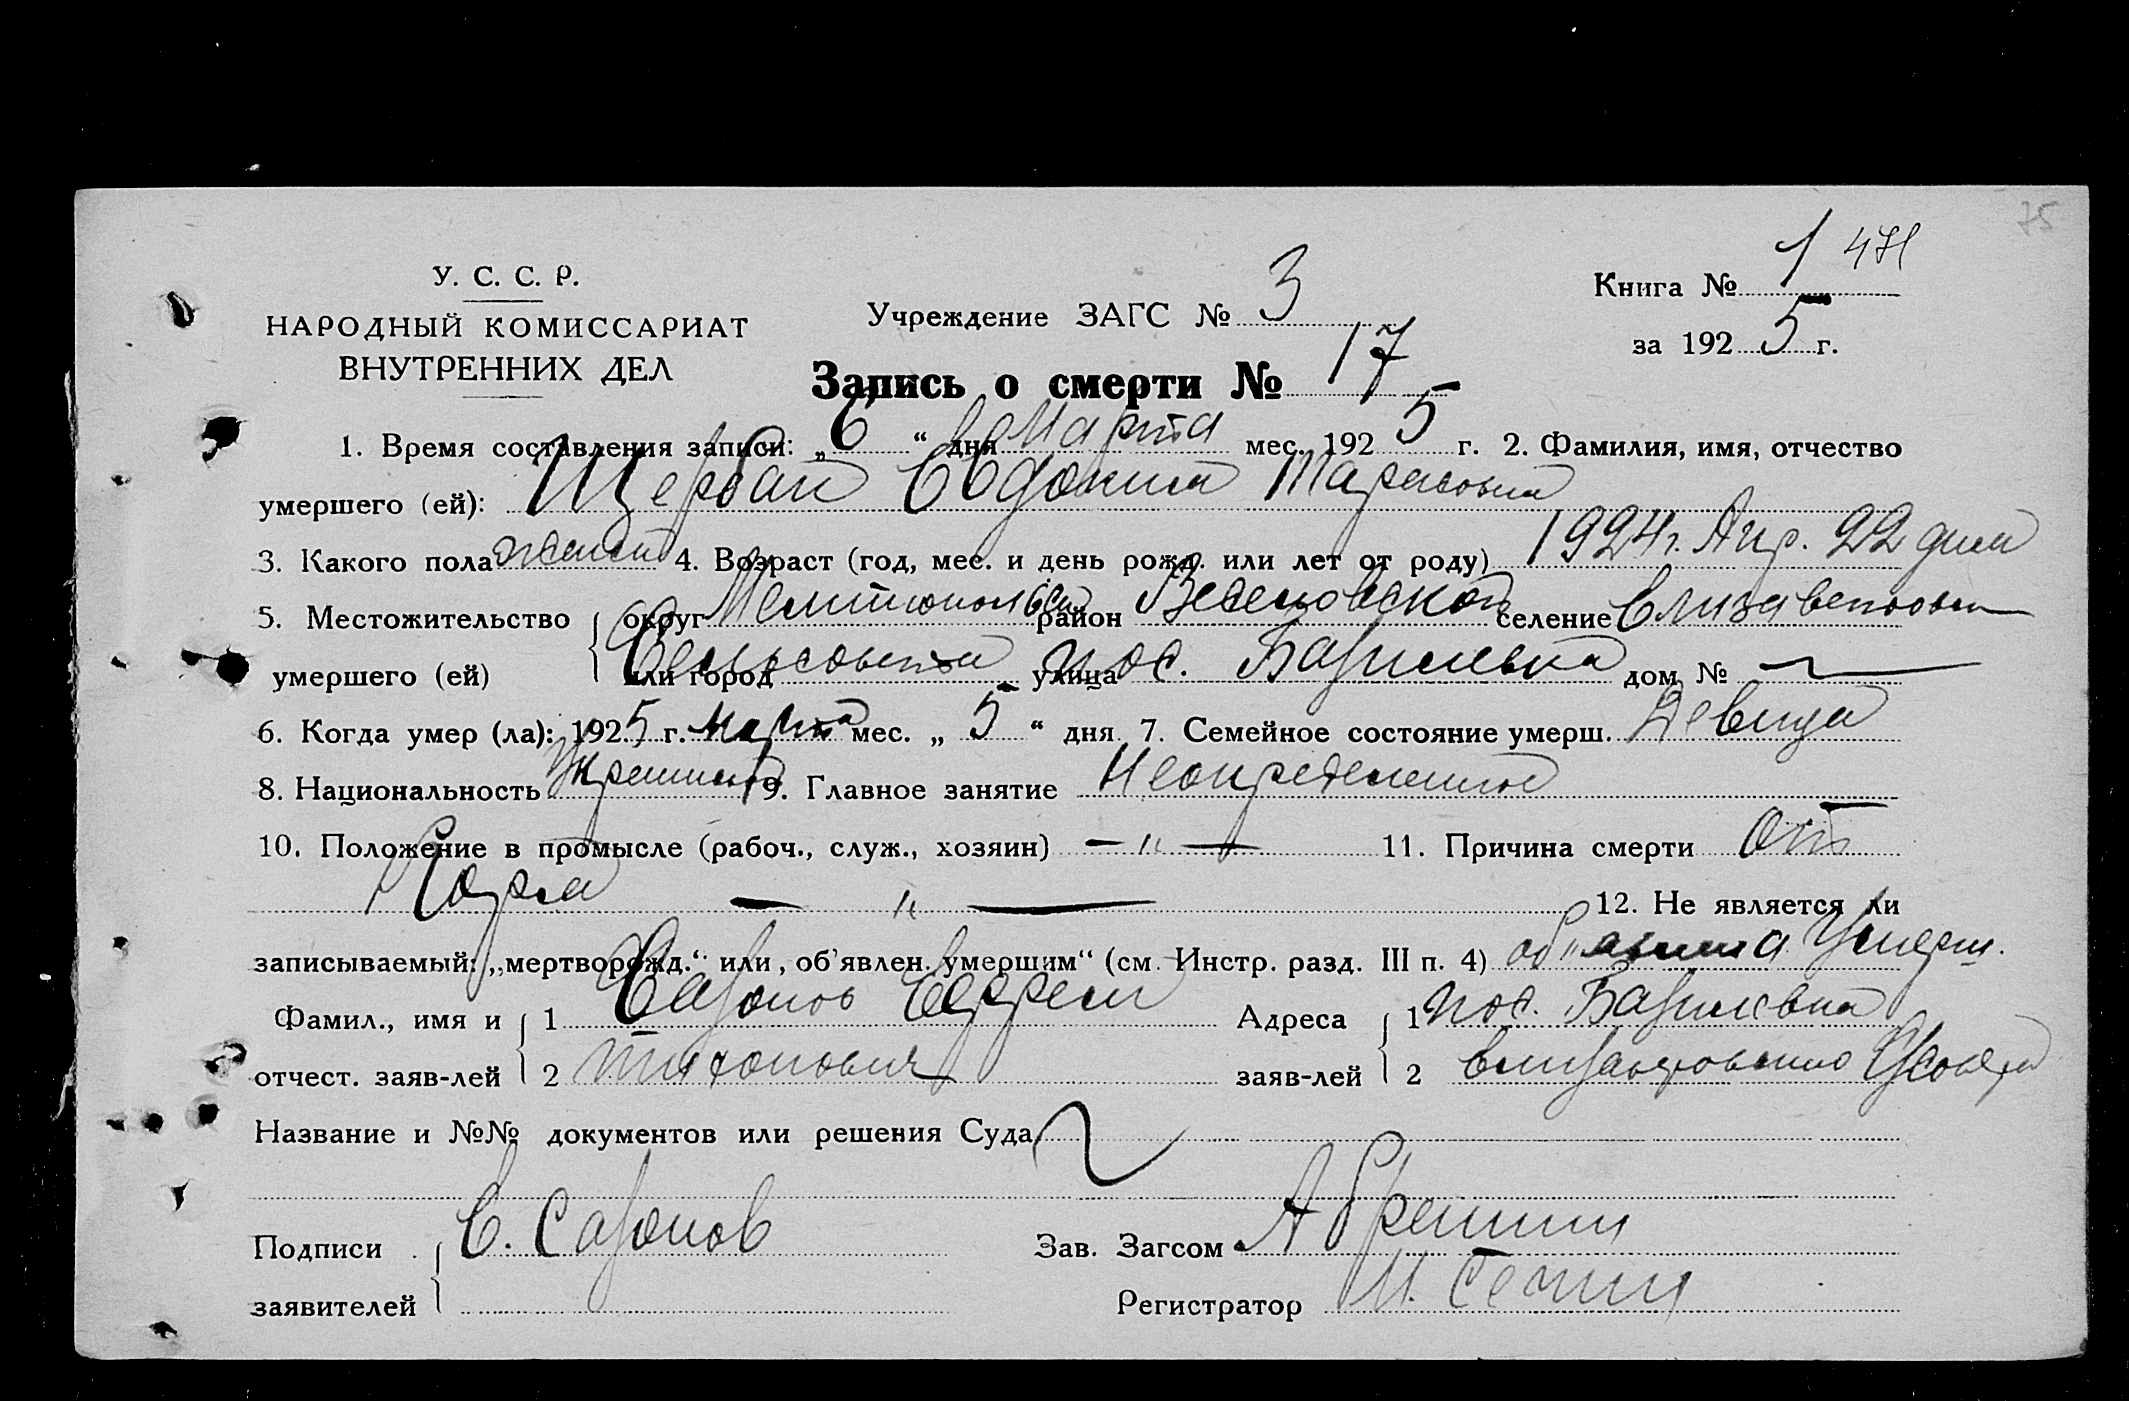 75
У. С. С. Р.
НАРОДНЫЙ КОМИССАРИАТ
ВНУТРЕННИХ ДЕЛ
Учреждение ЗАГС № 3
Книга № 1 471
за 1925 г.
Запись о смерти № 17
1. Время составления записи: „6“ дня Марта мес. 1925 г. 2. Фамилия, имя, отчество
умершего (ей): Щербак Евдокия Тарасовна
3. Какого пола женск 4. Возраст (год, мес. и день рожд. или лет от роду) 1924 г. Апр. 22 дня
5. Местожительство умершего (ей) { округ Мелитопольск район Веселовской селение Елизаветовск
или город Сельсовета улица пос. Базилевка дом №
6. Когда умер (ла): 1925 г. марта мес. „5“ дня 7. Семейное состояние умерш. Девица
8. Национальность 9. Главное занятие Неопределенное
10. Положение в промысле (рабоч., служ., хозяин) — „ — 11. Причина смерти От
Кори — „ — 12. Не является ли
записываемый: „мертворожд.“ или, об'явлен. умершим“ (см. Инстр. разд. III п. 4) умерш.
Фамил., имя и отчест. заяв-лей { 1 Сазонов Ефрем Адреса заяв-лей { 1 пос. Базилевка
2 Тихонович 2
Название и №№ документов или решения Суда
Подписи заявителей { Е. Сазонов Зав. Загсом
Регистратор